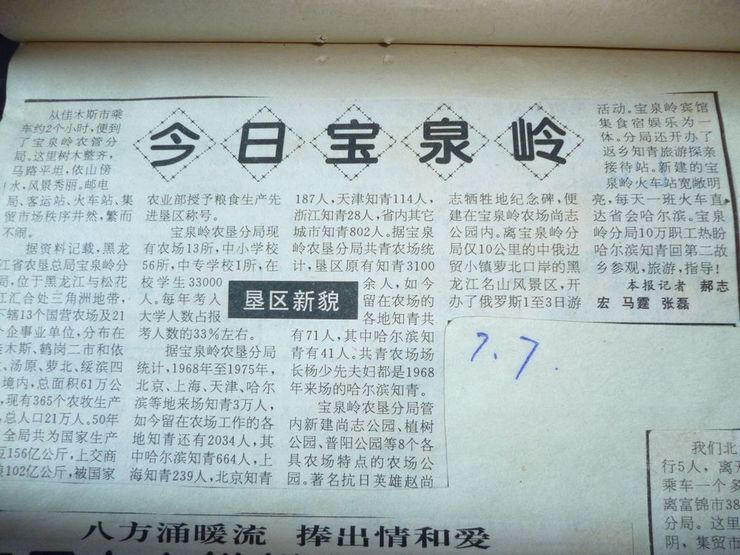 今日宝泉岭
从佳木斯市乘
车约2个小时,便到
了宝泉岭农管分
局,这里树木整齐,
马路平坦,依山傍
水,风景秀丽。邮电
局、客运站、火车站、集
贸市场秩序井然,繁而
不闹。
据资料记载,黑龙
江省农垦总局宝泉岭分
局,位于黑龙江与松花
江汇合处三角洲地带,
下辖13个国营农场及21
个企事业单位,分布在
佳木斯、鹤岗二市和依
、汤原、萝北、绥滨四
境内,总面积61万公
,现有365个农牧生产
总人口21万人。50年
全局共为国家生产
豆156亿公斤,上交商
102亿公斤,被国家
农业部授予粮食生产先
进垦区称号。
宝泉岭农垦分局现
有农场13所,中小学校
56所,中专学校1所,在
校学生33000
人。每年考入
大学人数占报
考人数的33%左右。
据宝泉岭农垦分局
统计,1968年至1975年,
北京、上海、天津、哈尔
滨等地来场知青3万人,
如今留在农场工作的各
地知青还有2034人,其
中哈尔滨知青664人,上
海知青239人,北京知青
垦区新貌
187人,天津知青114人,
浙江知青28人,省内其它
城市知青802人。据宝泉
岭农垦分局共青农场统
计,垦区原有知青3100
余人,如今
留在农场的
各地知青共
有71人,其中哈尔滨知
青有41人。共青农场场
长杨少先夫妇都是1968
年来场的哈尔滨知青。
宝泉岭农垦分局管
内新建尚志公园、植树
公园、普阳公园等8个各
具农场特点的农场公
园。著名抗日英雄赵尚
志牺牲地纪念碑,便
建在宝泉岭农场尚志
公园内。离宝泉岭分
局仅10公里的中俄边
贸小镇萝北口岸的黑
龙江名山风景区,开
办了俄罗斯1至3日游
活动。宝泉岭宾馆
集食宿娱乐为一
体。分局还开办了
返乡知青旅游探亲
接待站。新建的宝
泉岭火车站宽敞明
亮,每天一班火车直
达省会哈尔滨。宝泉
岭分局10万职工热盼
哈尔滨知青回第二故
乡参观,旅游,指导!
本报记者 郝志
宏 马霆 张磊
7.7.
八方涌暖流 捧出情和爱
我们北
行5人,离
乘车一个多
离富锦市38
分局。这里
阴,集贸市